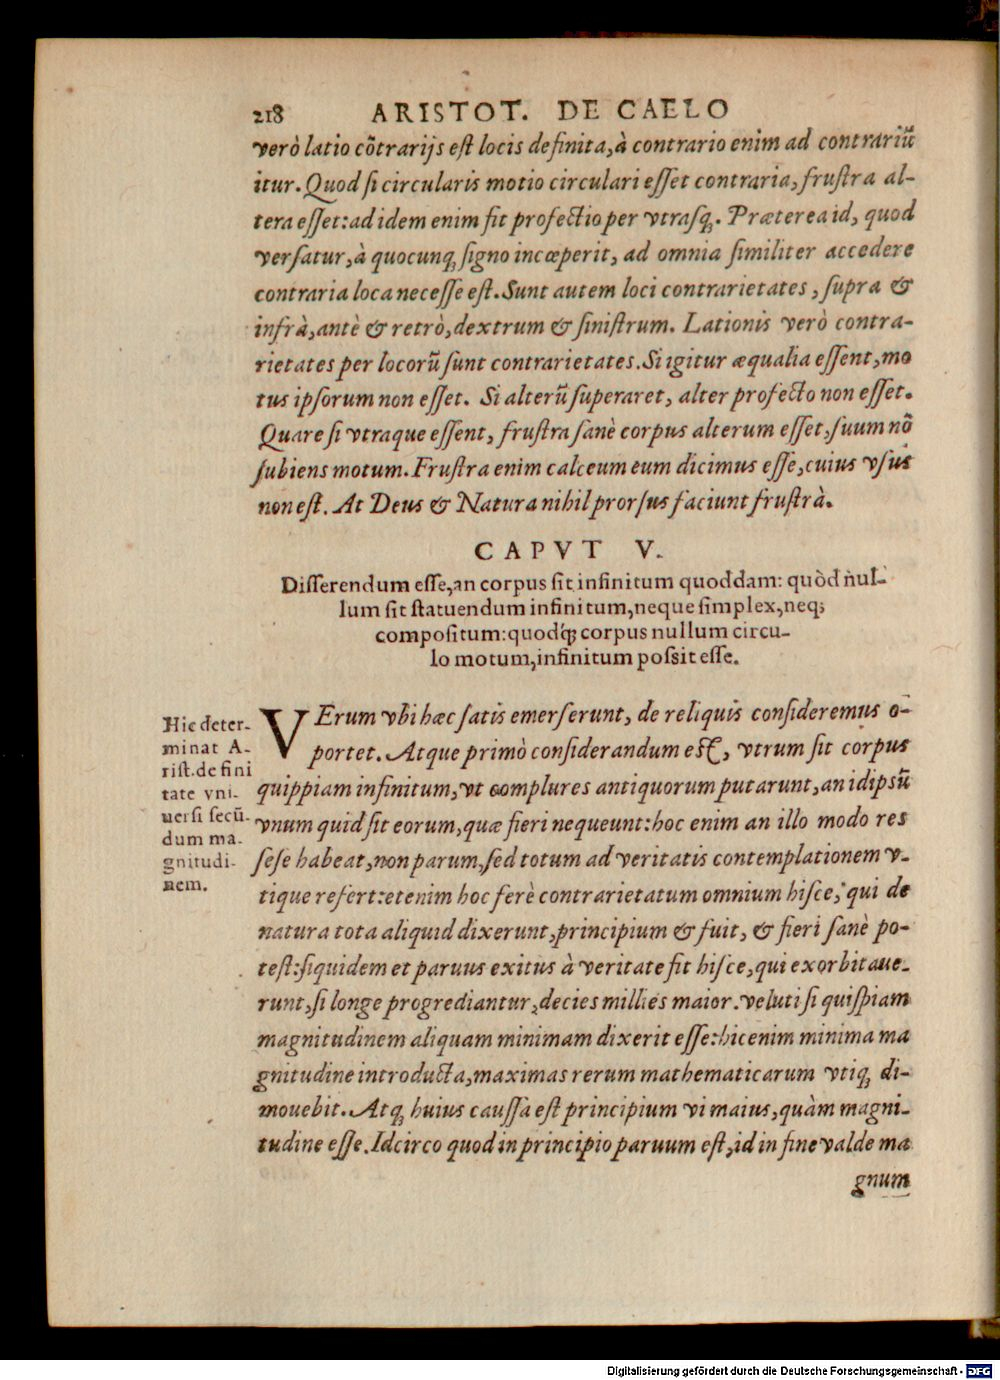 218 ARISTOT. DE CAELO
verò latio cõtrarijs est locis definita, à contrario enim ad contrariũ
itur. Quod si circularis motio circulari esset contraria, frustra al-
tera esset: ad idem enim fit profectio per vtrasq́. Præterea id, quod
versatur, à quocunq́ signo incœperit, ad omnia similiter accedere
contraria loca necesse est. Sunt autem loci contrarietates, supra &
infrà, antè & retrò, dextrum & sinistrum. Lationis verò contra-
rietates per locorũ sunt contrarietates. Si igitur æqualia essent, mo
tus ipsorum non esset. Si alterũ superaret, alter profecto non esset.
Quare si vtraque essent, frustra sanè corpus alterum esset, suum nõ
subiens motum. Frustra enim calceum eum dicimus esse, cuius vsus
non est. At Deus & Natura nihil prorsus faciunt frustrà.
CAPVT V.
Disserendum esse, an corpus sit infinitum quoddam: quòd nul-
lum sit statuendum infinitum, neque simplex, neq;
compositum: quodq́; corpus nullum circu-
lo motum, infinitum possit esse.
Hic deter-
minat A-
rist. de fini
tate vni-
uersi secũ-
dum ma-
gnitudi-
nem.
VErum vbi hæc satis emerserunt, de reliquis consideremus o-
portet. Atque primò considerandum est, vtrum sit corpus
quippiam infinitum, vt complures antiquorum putarunt, an id ipsũ
vnum quid sit eorum, quæ fieri nequeunt: hoc enim an illo modo res
sese habeat, non parum, sed totum ad veritatis contemplationem v-
tique refert: etenim hoc ferè contrarietatum omnium hisce, qui de
natura tota aliquid dixerunt, principium & fuit, & fieri sanè po-
test: siquidem et paruus exitus à veritate fit hisce, qui exorbitaue-
runt, si longe progrediantur, decies millies maior. veluti si quispiam
magnitudinem aliquam minimam dixerit esse: hic enim minima ma
gnitudine introducta, maximas rerum mathematicarum vtiq́ di-
mouebit. Atq́ huius caussa est principium vi maius, quàm magni-
tudine esse. Idcirco quod in principio paruum est, id in fine valde ma
gnum
Digitalisierung gefördert durch die Deutsche Forschungsgemeinschaft - DFG